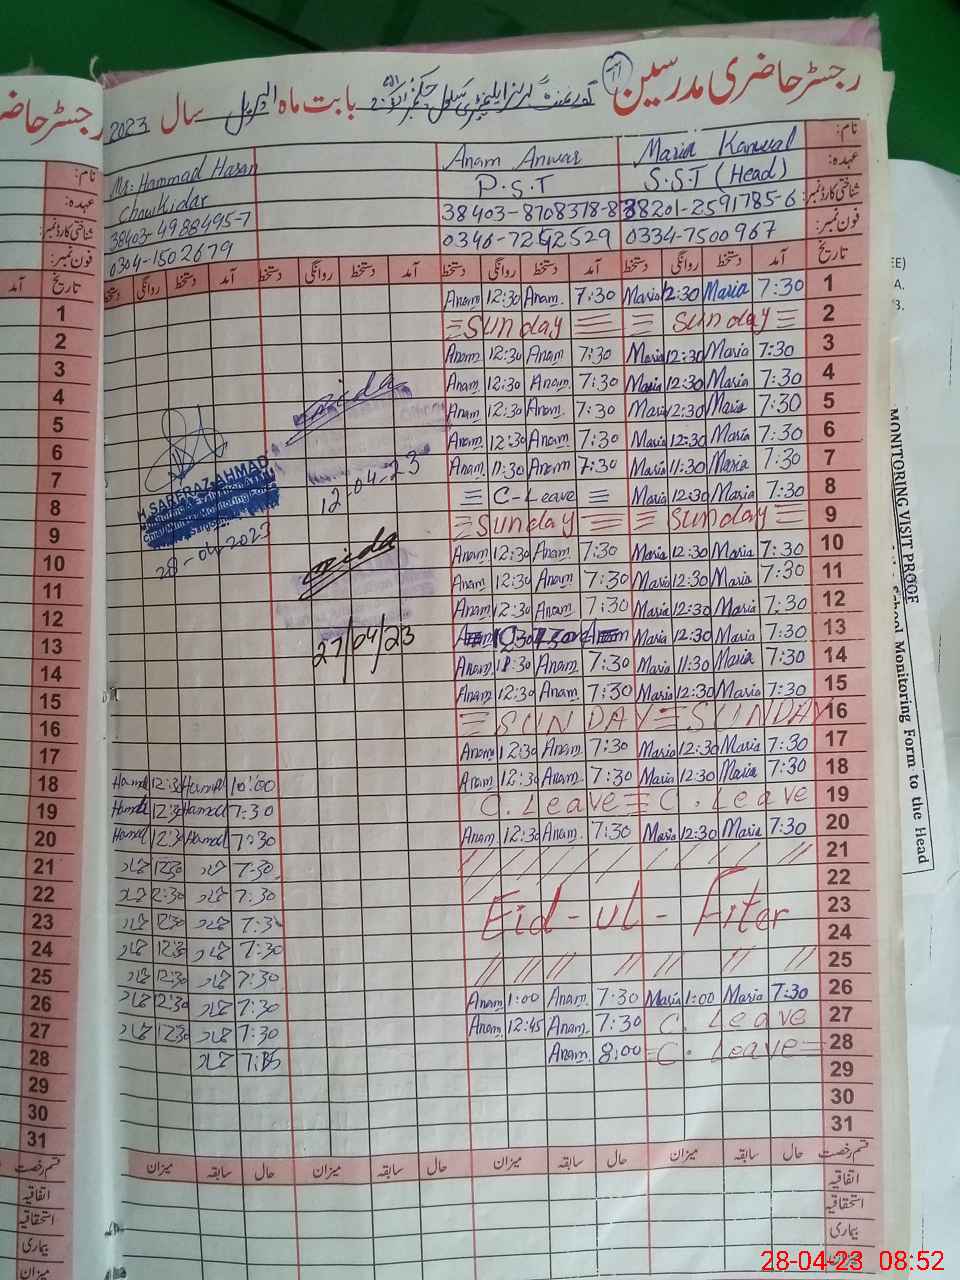 رجسٹر حاضری مدرسین 11 گورنمنٹ گرلز ایلیمنٹری سکول چک نمبر بابت ماہ اپریل سال 2023
نام: Maria Kanwal Anam Anwar Mr. Hammad Hasan
عہدہ: S.S.T (Head) P.S.T Chowkidar
شناختی کارڈ نمبر: 38201-2591785-6 38403-8708378-8 38403-4988495-7
فون نمبر: 0334-7500967 0346-7292529 0304-1502679
تاریخ آمد دستخط روانگی دستخط آمد دستخط روانگی دستخط آمد دستخط روانگی دستخط آمد دستخط روانگی دستخط
1 7:30 Maria 12:30 Maria 7:30 Anam 12:30 Anam
2 Sunday Sunday
3 7:30 Maria 12:30 Maria 7:30 Anam 12:30 Anam
4 7:30 Maria 12:30 Maria 7:30 Anam 12:30 Anam
5 7:30 Maria 12:30 Maria 7:30 Anam 12:30 Anam
6 7:30 Maria 12:30 Maria 7:30 Anam 12:30 Anam
7 7:30 Maria 11:30 Maria 7:30 Anam 11:30 Anam
8 7:30 Maria 12:30 Maria C-Leave
9 Sunday Sunday
10 7:30 Maria 12:30 Maria 7:30 Anam 12:30 Anam
11 7:30 Maria 12:30 Maria 7:30 Anam 12:30 Anam
12 7:30 Maria 12:30 Maria 7:30 Anam 12:30 Anam
13 7:30 Maria 12:30 Maria Anam 7:30 12:30 Anam
14 7:30 Maria 11:30 Maria 7:30 Anam 11:30 Anam
15 7:30 Maria 12:30 Maria 7:30 Anam 12:30 Anam
16 SUNDAY SUNDAY
17 7:30 Maria 12:30 Maria 7:30 Anam 12:30 Anam
18 7:30 Maria 12:30 Maria 7:30 Anam 12:30 Anam 10:00 Hamad 12:30 Hamad
19 C. Leave C. Leave 7:30 Hamad 12:30 Hamad
20 7:30 Maria 12:30 Maria 7:30 Anam 12:30 Anam 7:30 Hamad 12:30 Hamad
21 7:30 حماد 12:30 حماد
22 7:30 حماد 12:30 حماد
23 Eid-ul-Fiter 7:30 حماد 12:30 حماد
24 7:30 حماد 12:30 حماد
25 7:30 حماد 12:30 حماد
26 7:30 Maria 1:00 Maria 7:30 Anam 1:00 Anam 7:30 حماد 12:30 حماد
27 C. Leave 7:30 Anam 12:45 Anam 7:30 حماد 12:30 حماد
28 C. Leave 8:00 Anam حماد
29
30
31
قسم رخصت حال سابقہ میزان حال سابقہ میزان حال سابقہ میزان حال سابقہ میزان
اتفاقیہ
استحقاقیہ
بیماری
میزان
12-04-23
27/04/23
M. SARFRAZ AHMAD
28-04-2023
رجسٹر حاضری
نام:
عہدہ:
شناختی کارڈ نمبر:
فون نمبر:
تاریخ آمد
1
2
3
4
5
6
7
8
9
10
11
12
13
14
15
16
17
18
19
20
21
22
23
24
25
26
27
28
29
30
31
قسم رخصت
اتفاقیہ
استحقاقیہ
بیماری
میزان
EE)
A.
B.
MONITORING VISIT PROOF
School Monitoring Form to the Head
28-04-23 08:52